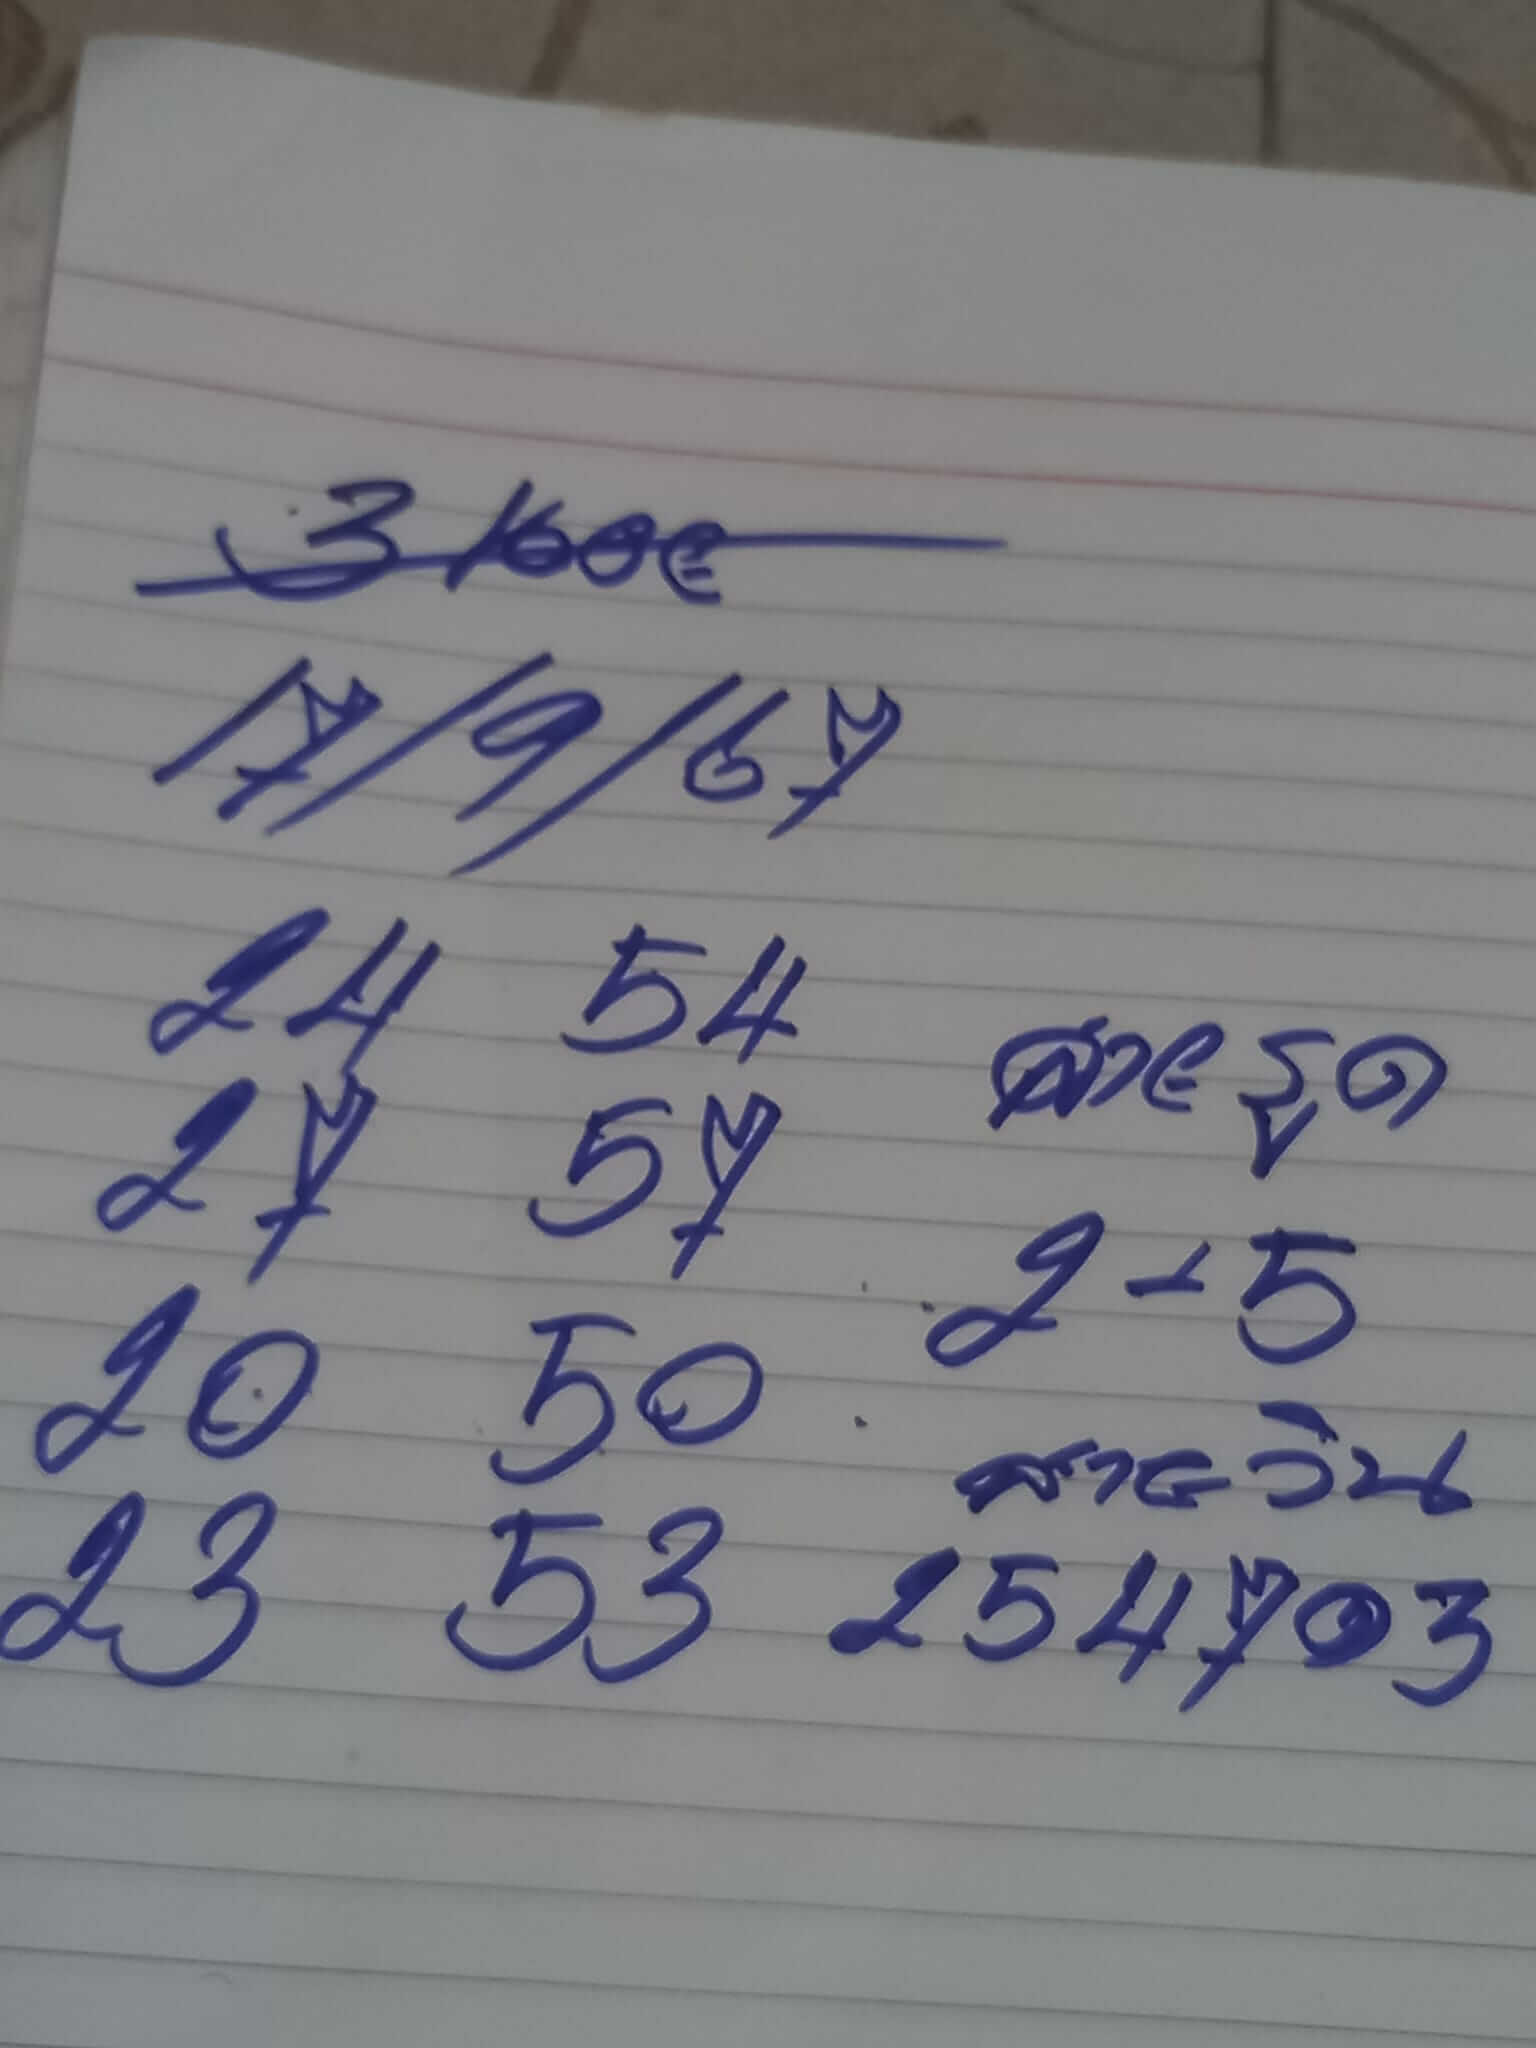 17/9/67
24 54
27 57
20 50
23 53
สายรูด
2-5
สายวิน
254703